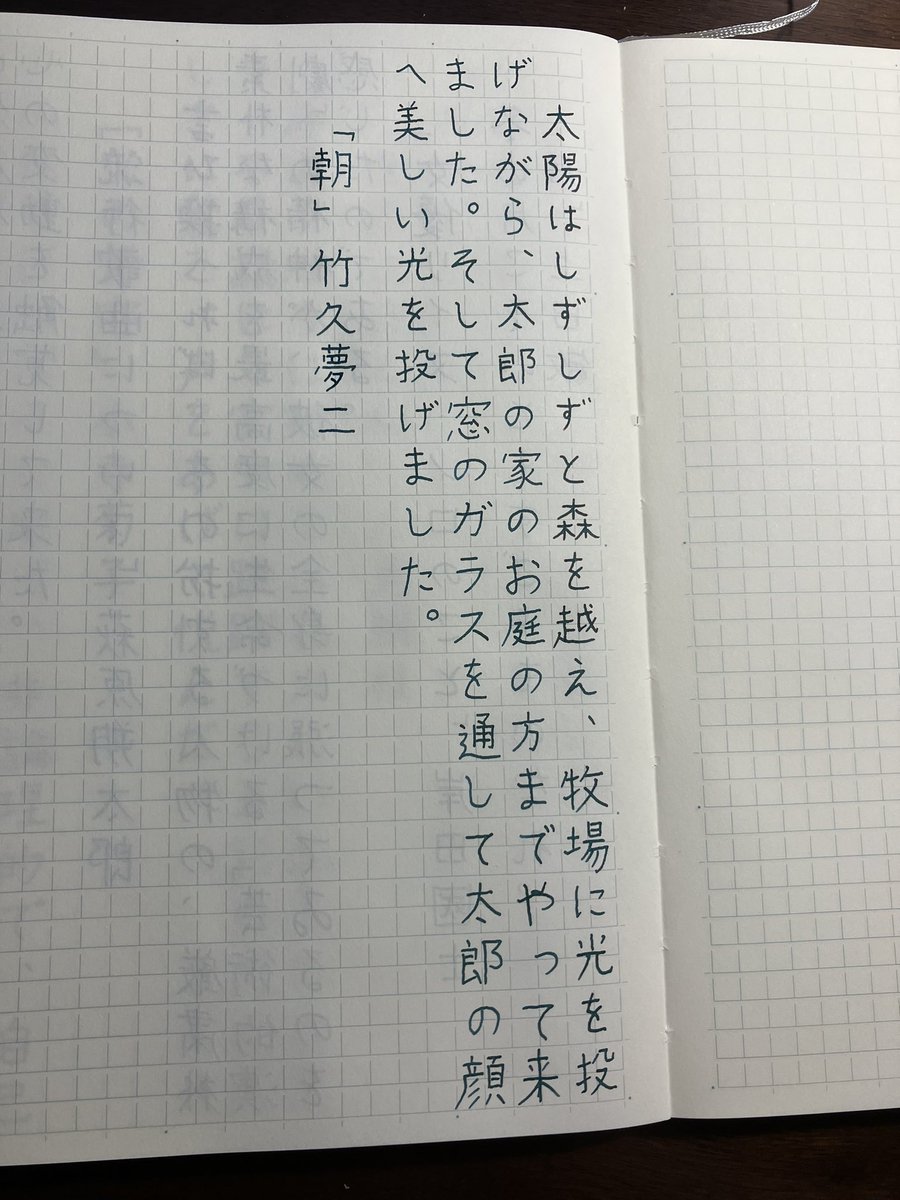 太陽はしずしずと森を越え、牧場に光を投
げながら、太郎の家のお庭の方までやって来
ました。そして窓のガラスを通して太郎の顔
へ美しい光を投げました。
「朝」竹久夢二